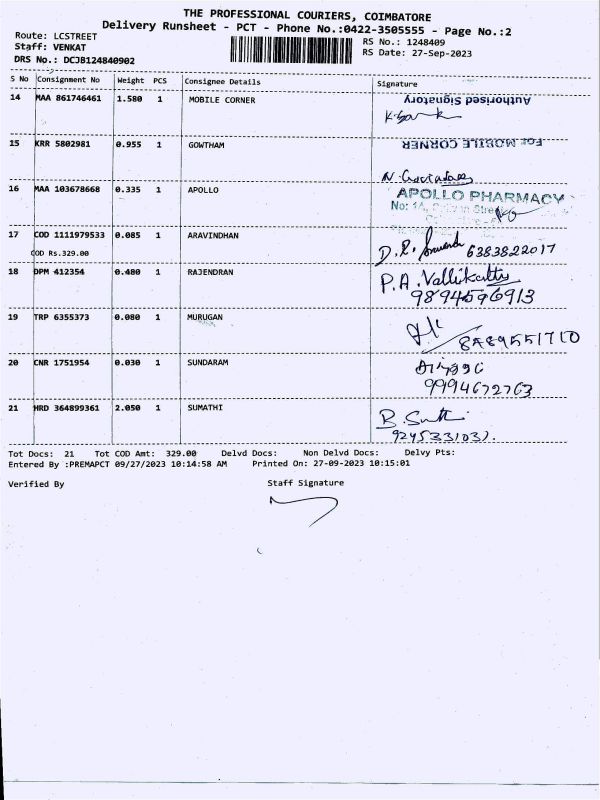 THE PROFESSIONAL COURIERS, COIMBATORE
Delivery Runsheet - PCT - Phone No.:0422-3505555 - Page No.:2
Route: LCSTREET
Staff: VENKAT
DRS No.: DCJB124840902
RS No.: 1248409
RS Date: 27-Sep-2023
S No Consignment No Weight PCS Consignee Details Signature
14 MAA 861746461 1.580 1 MOBILE CORNER
Authorised Signatory
15 KRR 5802981 0.955 1 GOWTHAM
For MOBILE CORNER
16 MAA 103678668 0.335 1 APOLLO
APOLLO PHARMACY
No: 14,
17 COD 1111979533 0.085 1 ARAVINDHAN
COD Rs.329.00
D.R. 6383822017
18 DPM 412354 0.480 1 RAJENDRAN
P.A. Vallikattu
9894596913
19 TRP 6355373 0.080 1 MURUGAN
8489551710
20 CNR 1751954 0.030 1 SUNDARAM
9994672763
21 HRD 364899361 2.050 1 SUMATHI
B.
Tot Docs: 21 Tot COD Amt: 329.00 Delvd Docs: Non Delvd Docs: Delvy Pts:
Entered By :PREMAPCT 09/27/2023 10:14:58 AM Printed On: 27-09-2023 10:15:01
Verified By Staff Signature